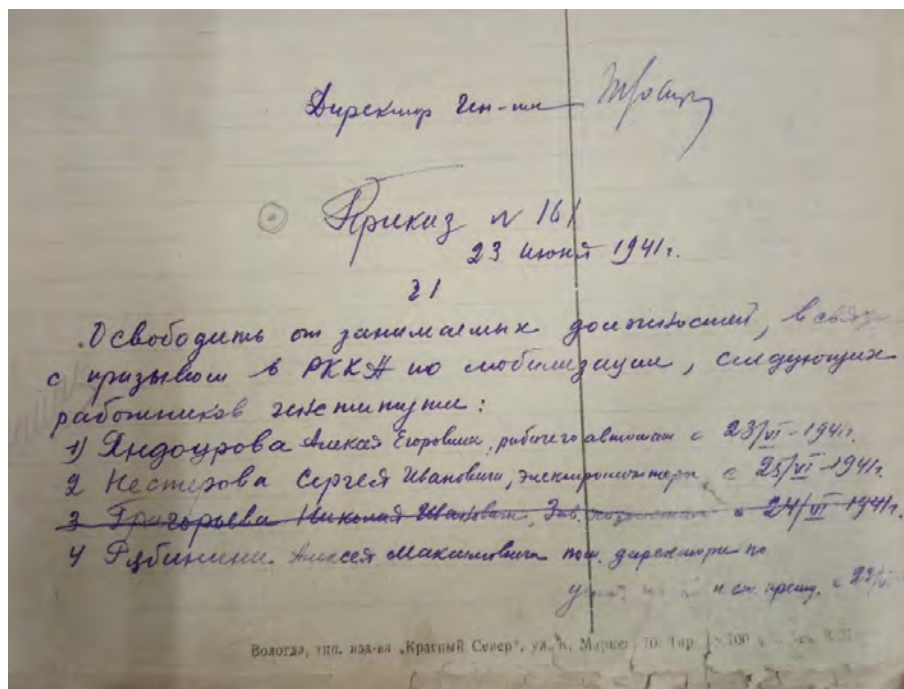 Директор Ин-та
Приказ № 161
23 июня 1941г.
§1
Освободить от занимаемых должностей, в связи
с призывом в РККА по мобилизации, следующих
работников института:
1) Яндоурова Алексея Егоровича, рабочего с 23/VI-1941г.
2 Нестерова Сергея Ивановича, электромонтера, с 25/VI-1941г.
3 Григорьева Николая Ивановича, Зав. с 24/VI 1941г.
4 Рубинина Алексея Максимовича пом. директора по
и ст. препод. с 22/VI
Вологда, тип. изд-ва „Красный Север“, ул. К. Маркса, 70. Тир.